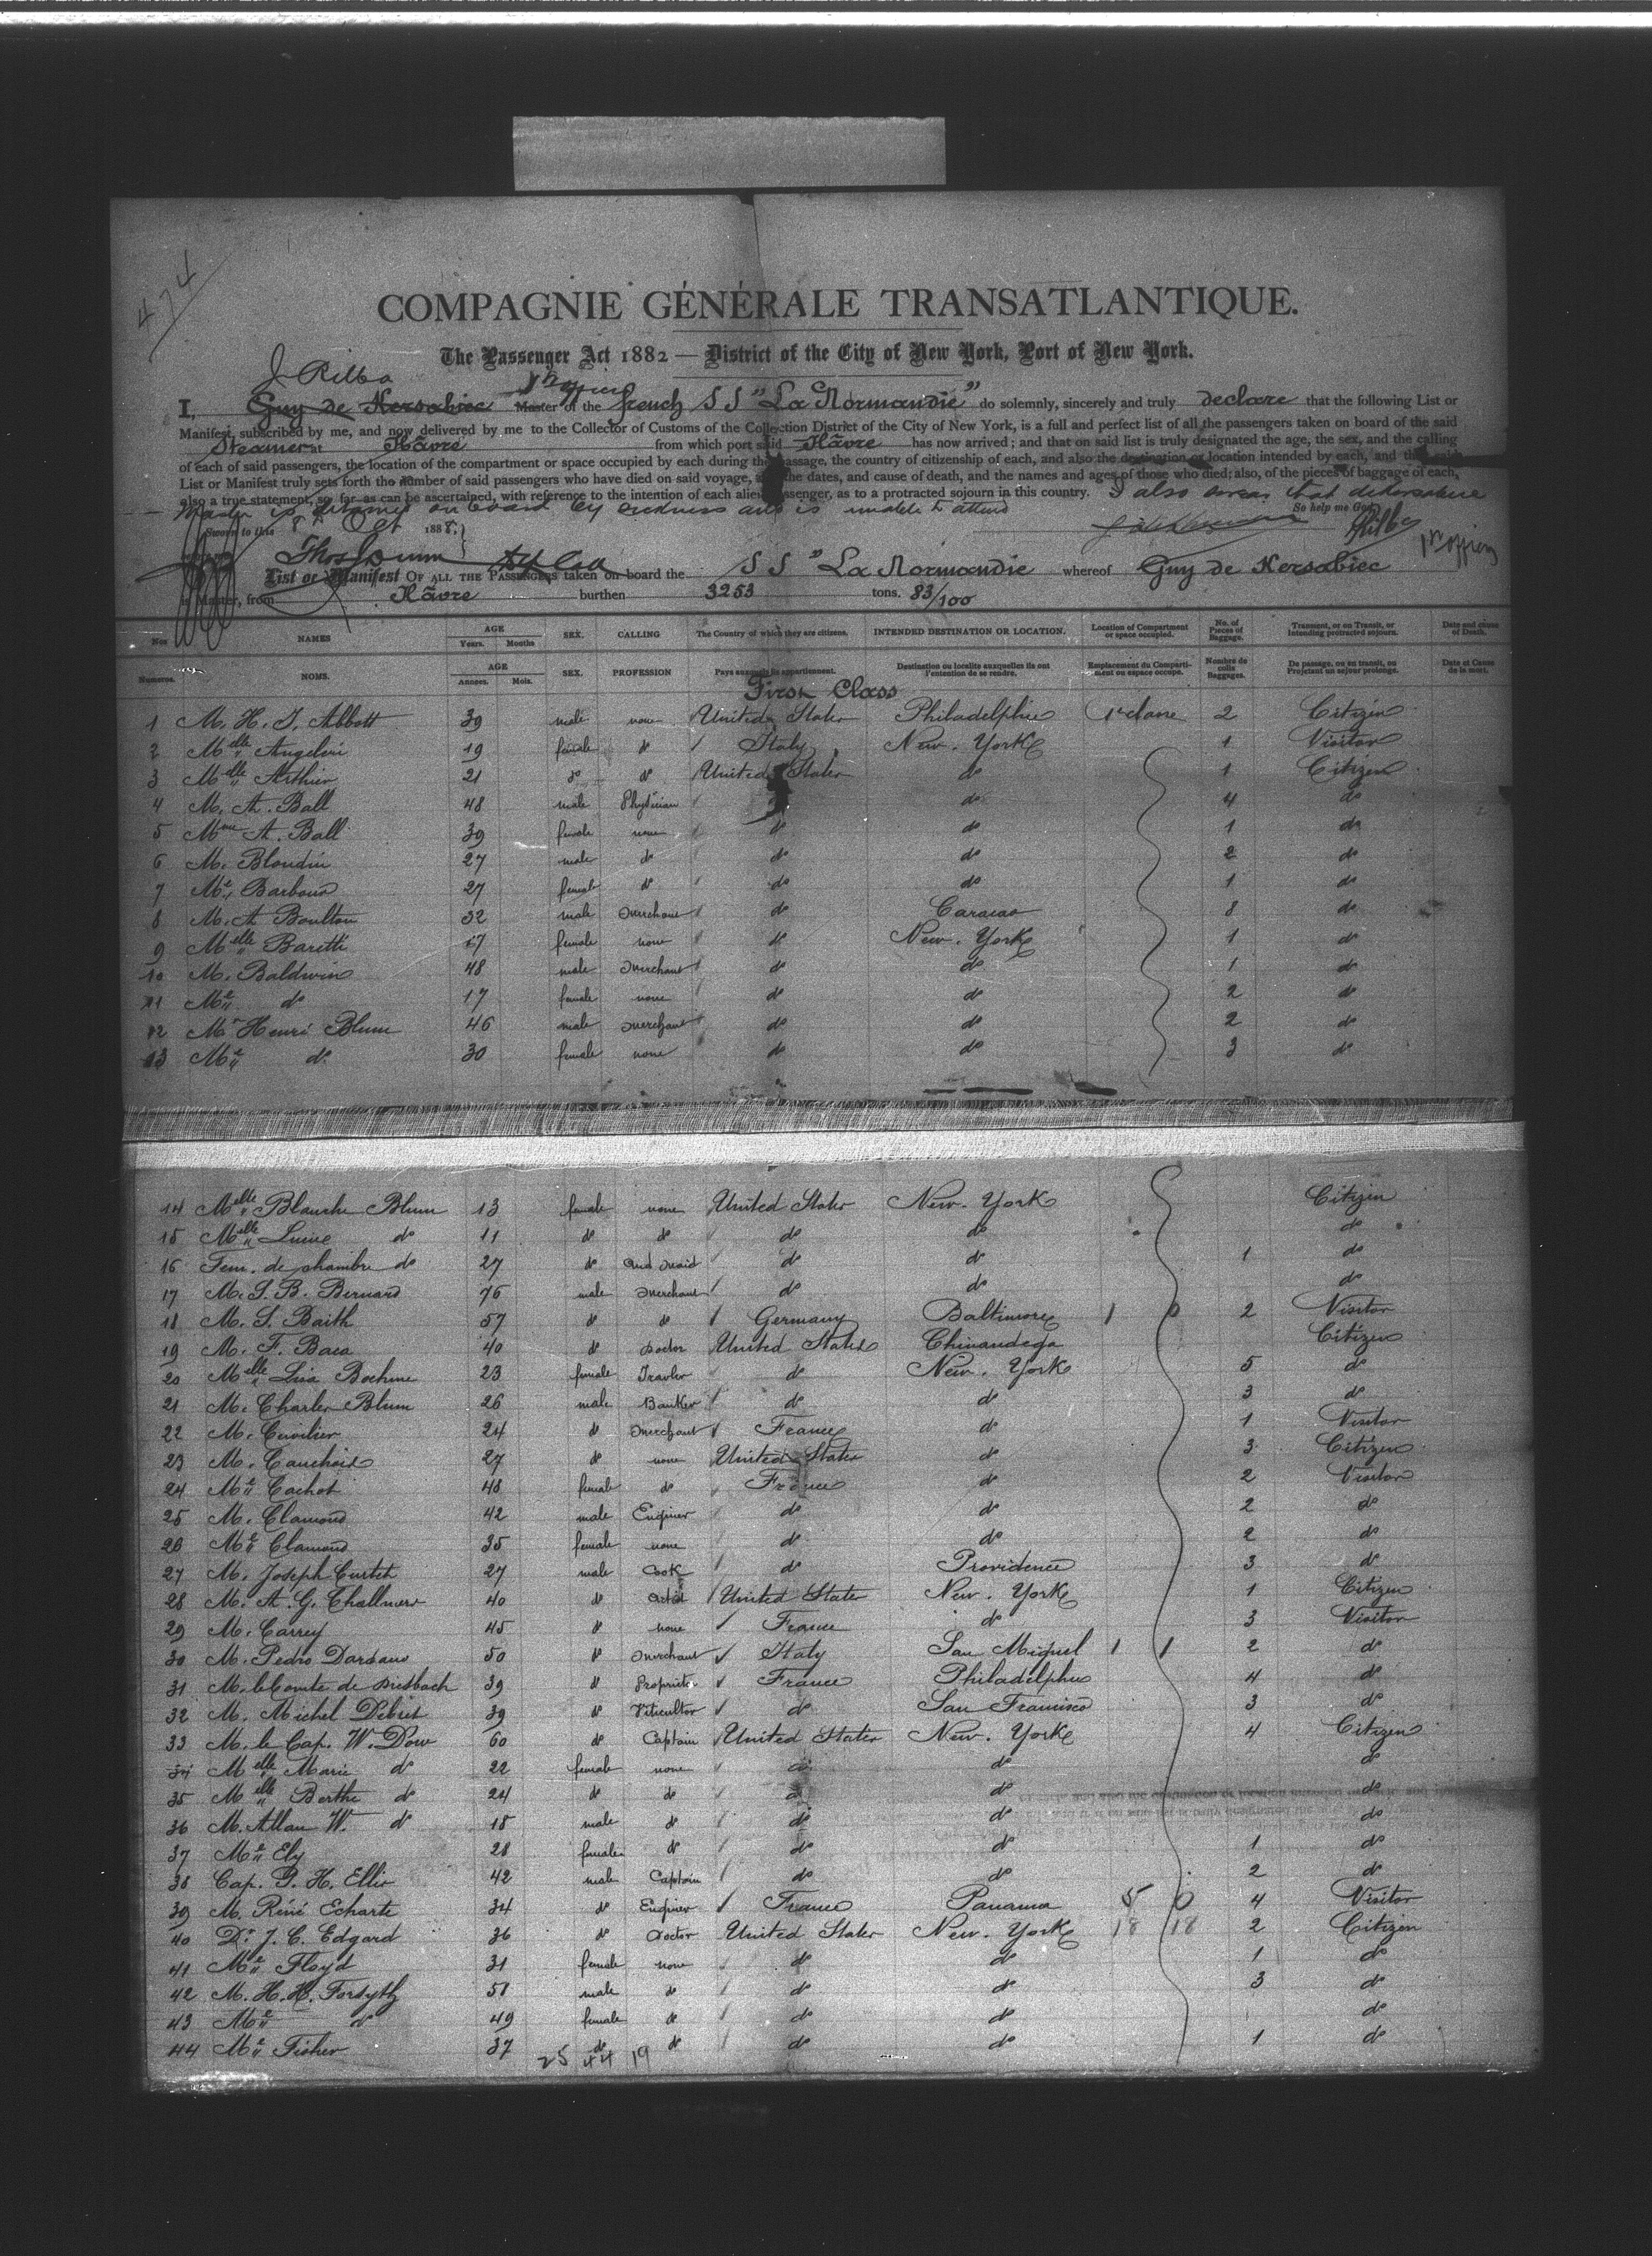 474
COMPAGNIE GÉNÉRALE TRANSATLANTIQUE.
The Passenger Act 1882 — District of the City of New York, Port of New York.
J. Rilba
1st officer
I, Guy de Kersabiec Master of the french SS "La Normandie" do solemnly, sincerely and truly declare that the following List or
Manifest, subscribed by me, and now delivered by me to the Collector of Customs of the Collection District of the City of New York, is a full and perfect list of all the passengers taken on board of the said
Steamer at Hâvre from which port said Hâvre has now arrived; and that on said list is truly designated the age, the sex, and the calling
of each of said passengers, the location of the compartment or space occupied by each during the passage, the country of citizenship of each, and also the destination or location intended by each, and that said
List or Manifest truly sets forth the number of said passengers who have died on said voyage, and the dates, and cause of death, and the names and ages of those who died; also, of the pieces of baggage of each,
also a true statement, so far as can be ascertained, with reference to the intention of each alien passenger, as to a protracted sojourn in this country. I also swear that deKersabiec
Master is detained on board by sickness and is unable to attend So help me God
Sworn to this 8th Oct 1888.
1st officer
List or Manifest OF ALL THE PASSENGERS taken on board the SS "La Normandie whereof Guy de Kersabiec
is Master, from Hâvre burthen 3253 tons. 83/100
Nos NAMES AGE Years. Months SEX. CALLING The Country of which they are citizens. INTENDED DESTINATION OR LOCATION. Location of Compartment or space occupied. No. of Pieces of Baggage. Transient, or on Transit, or Intending protracted sojourn. Date and cause of Death.
Numeros. NOMS. AGE Annees. Mois. SEX. PROFESSION Pays auxquels ils appartiennent. Destination ou localite auxquelles ils ont l'entention de se rendre. Emplacement du Compartiment ou espace occupe. Nombre de colis Baggages. De passage, ou en transit, ou Projetant un sejour prolonge. Date et Cause de la mort.
First Class
1 M. H. J. Abbott 39 male none United States Philadelphie 1r classe 2 Citizen
2 Melle Angelini 19 female do Italy New. York 1 Visitor
3 Melle Arthur 21 do do United States do 1 Citizen
4 M. A. Ball 48 male Physician do 4 do
5 Mme A. Ball 39 female none do do 1 do
6 M. Blondin 27 male do do do 2 do
7 Me Barbour 27 female do do do 1 do
8 M. A Boulton 32 male Merchant do Caracas 8 do
9 Melle Baretti 17 female none do New. York 1 do
10 M. Baldwin 48 male Merchant do do 1 do
11 Me do 17 female none do do 2 do
12 Mr Henri Blum 46 male Merchant do do 2 do
13 Me do 30 female none do do 3 do
14 Melle Blanche Blum 13 female none United States New. York Citizen
15 Melle Lucie do 11 do do do do do
16 Fem. de chambre do 27 do and Maid do do 1 do
17 M. S. B. Bernard 76 male Merchant do do do
18 M. S. Baith 57 do do Germany Baltimore 1 0 2 Visitor
19 M. F. Baca 40 do Doctor United States Chinandega Citizen
20 Melle Lisa Boehme 23 female Travler do New. York 5 do
21 M. Charles Blum 26 male Banker do do 3 do
22 M. Cuvilier 24 do Merchant France do 1 Visitor
23 M. Cauchois 27 do none United States do 3 Citizen
24 Me Cachot 48 female do France do 2 Visitor
25 M. Clamond 42 male Enginer do do 2 do
26 Me Clamond 35 female none do do 2 do
27 M. Joseph Curtet 27 male Cook do Providence 3 do
28 M. A. G. Challmers 40 do United States New. York 1 Citizen
29 M. Carrey 45 do none France do 3 Visitor
30 M. Pedro Dardano 50 do Merchant Italy San Miguel 1 1 2 do
31 M. le Comte de Diesbach 39 do Propriete France Philadelphie 4 do
32 M. Michel Debret 39 do Viticultor do San Francisco 3 do
33 M. le Cap. W. Dow 60 do Captain United States New. York 4 Citizen
34 Melle Marie do 22 female none do do do
35 Melle Berthe do 24 do do do do do
36 M. Allan W. do 18 male do do do do
37 Me Ely 28 female do do do 1 do
38 Cap. G. H. Ellis 42 male Captain do do 2 do
39 M. Réné Echarte 34 do Enginer France Panama 5 0 4 Visitor
40 Dr. J. C. Edgard 36 do Doctor United States New. York 18 18 2 Citizen
41 Me Floyd 31 female none do do 1 do
42 M. H. H. Forsyth 51 male do do do 3 do
43 Me do 49 female do do do do
44 Me Fisher 37 do do do do 1 do
25 44 19